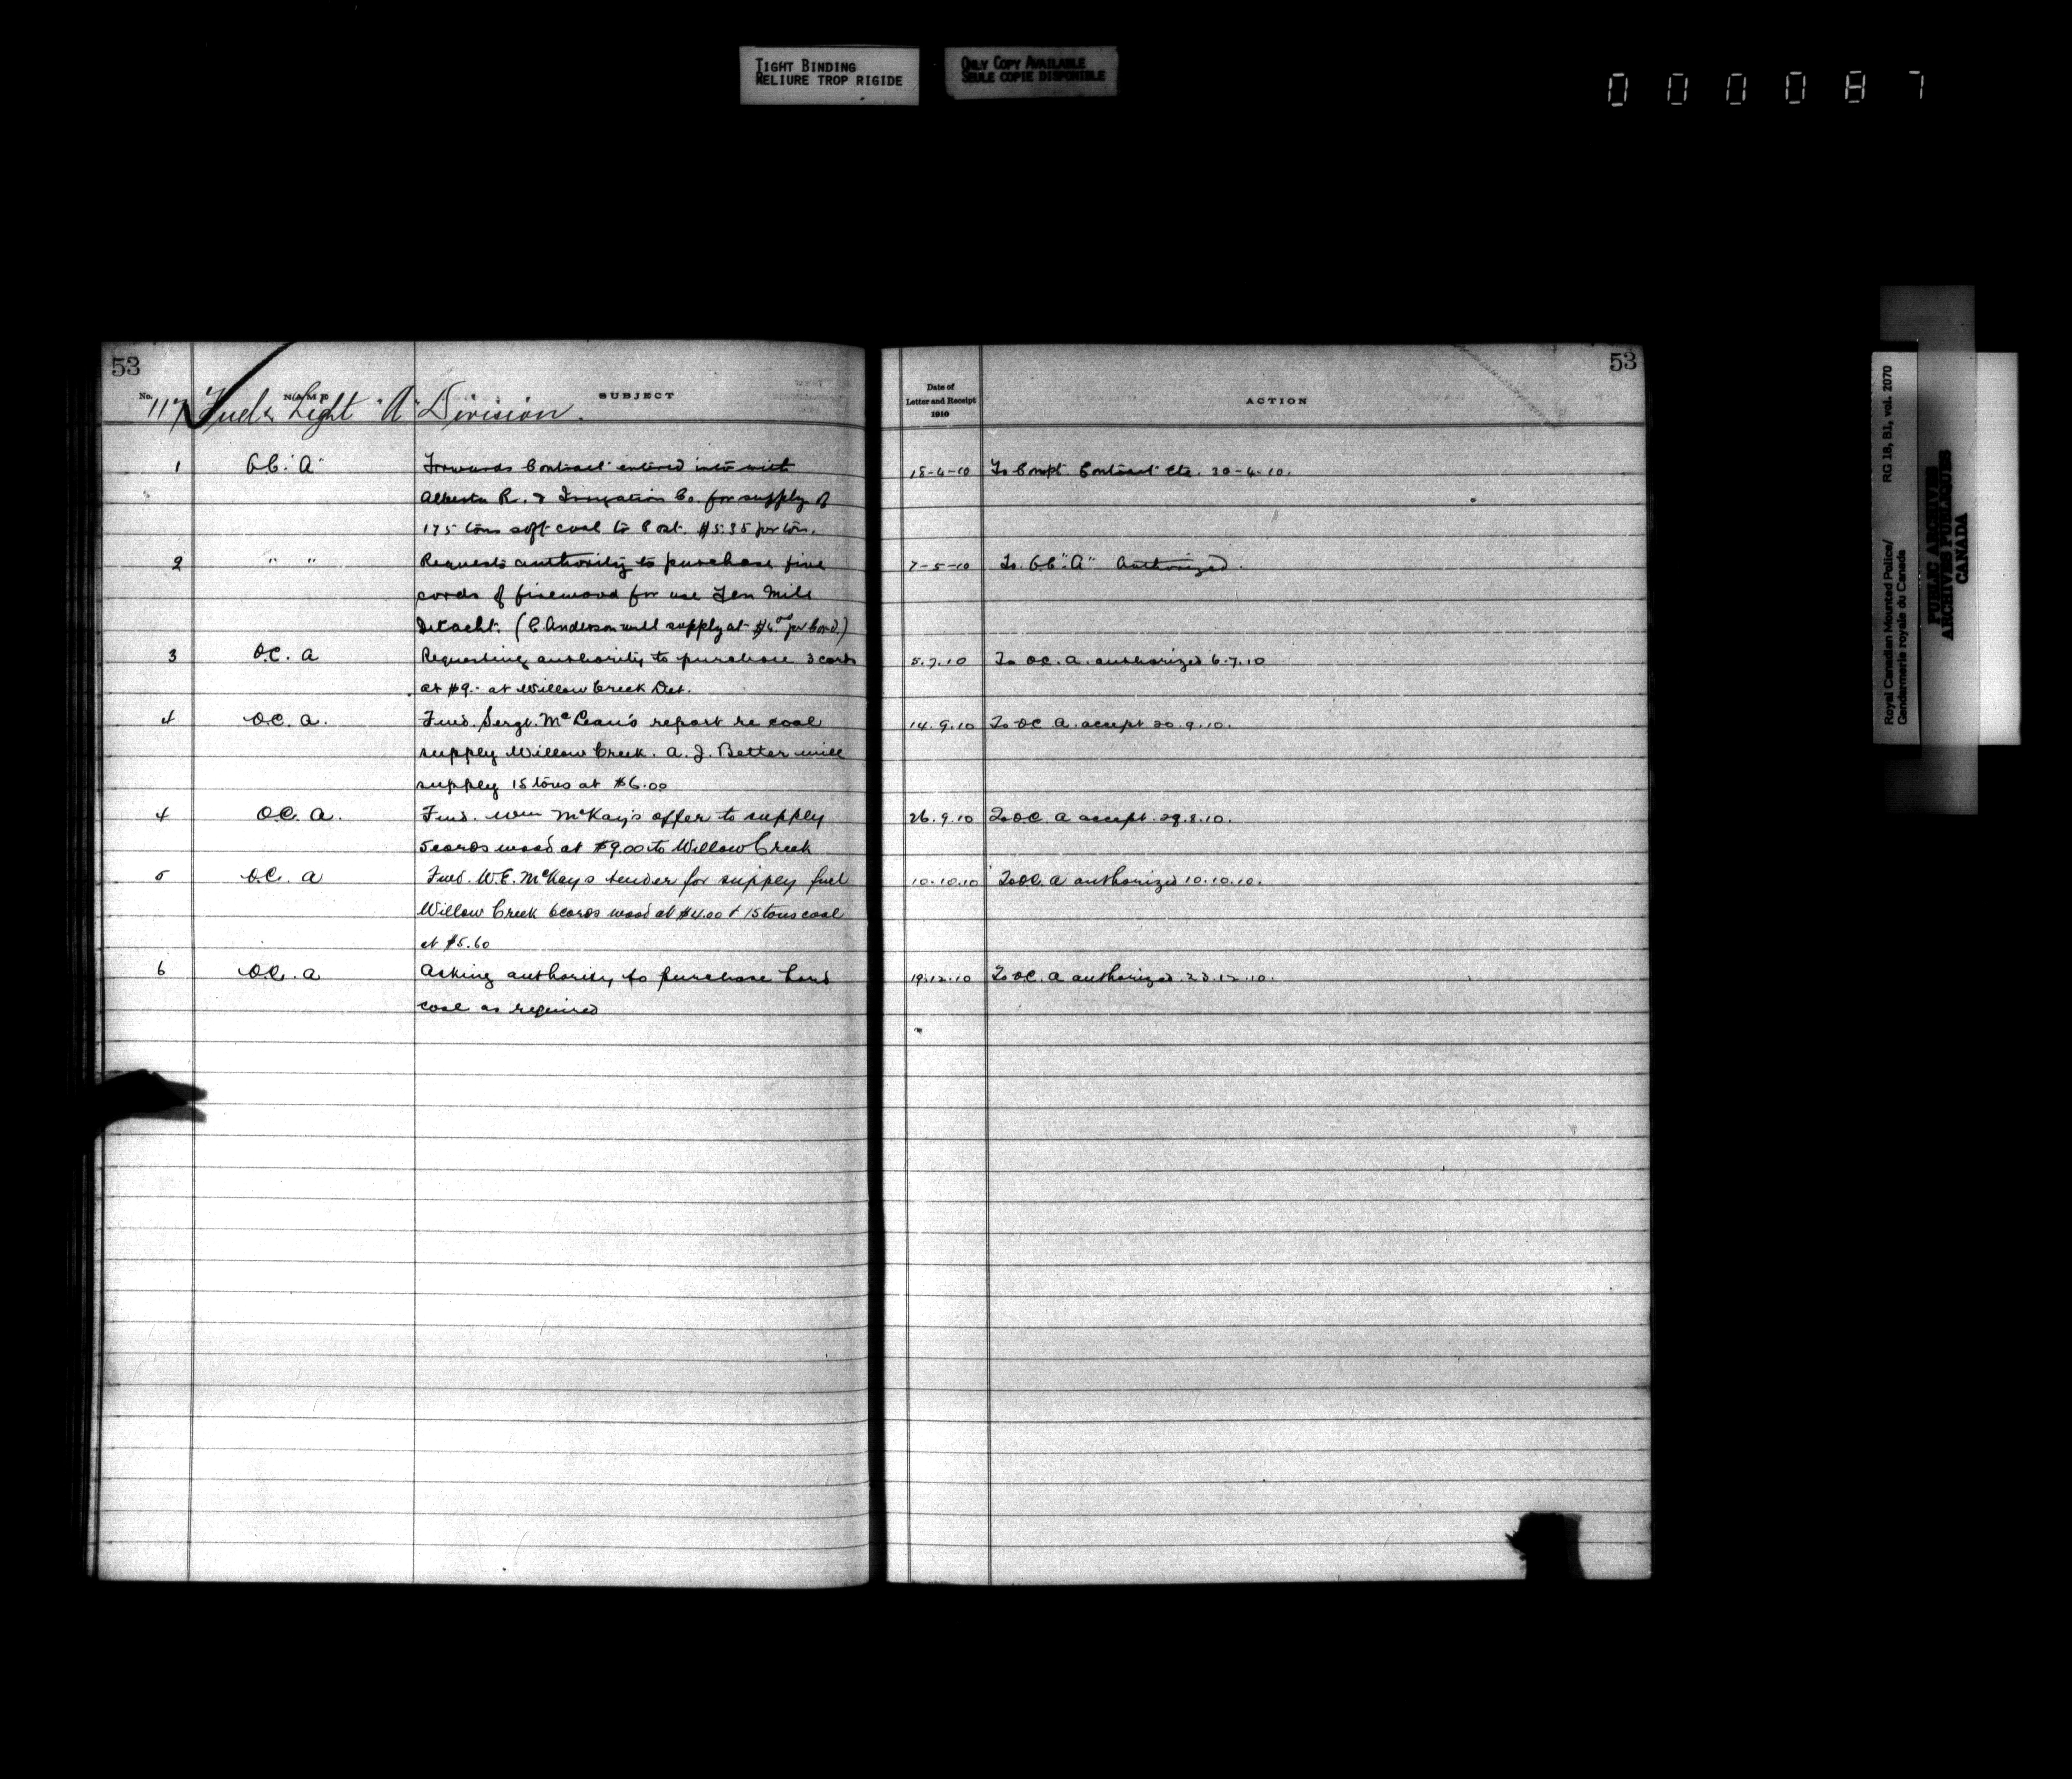 TIGHT BINDING
RELIURE TROP RIGIDE
ONLY COPY AVAILABLE
SEULE COPIE DISPONIBLE
000087
53
No. NAME SUBJECT
117 Fuel & Light "A" Division.
1 O.C. "A" Forwards Contract entered into with
Alberta R. & Irrigation Co. for supply of
175 tons soft coal to Post. $5.35 per ton.
2 " " Requests authority to purchase five
cords of firewood for use Ten Mile
Detacht. (C. Anderson will supply at $6.00 per Cord.)
3 O.C. A Requesting authority to purchase 3 cords
at $9.- at Willow Creek Det.
4 O.C. A. Fwd. Sergt. McLean's report re coal
supply Willow Creek. A. J. Better will
supply 15 tons at $6.00
4 O.C. A. Fwd. Wm McKay's offer to supply
5 cords wood at $9.00 to Willow Creek
5 O.C. A Fwd. W.E. McKay's tender for supply fuel
Willow Creek 6 cords wood at $4.00 & 15 tons coal
at $5.60
6 O.C. A Asking authority to purchase hard
coal as required
53
Date of
Letter and Receipt
1910
ACTION
18-4-10 To Compt. Contract etc. 20-4-10.
7-5-10 To O.C. "A" Authorized.
5.7.10 To O.C. A. authorized 6.7.10
14.9.10 To O.C. A. accept 20.9.10.
26.9.10 To O.C. A accept. 29.8.10.
10.10.10 To O.C. A authorized 10.10.10.
19.12.10 To O.C. A authorized. 23.12.10.
Royal Canadian Mounted Police/
Gendarmerie royale du Canada
RG 18, B1, vol. 2070
PUBLIC ARCHIVES
ARCHIVES PUBLIQUES
CANADA